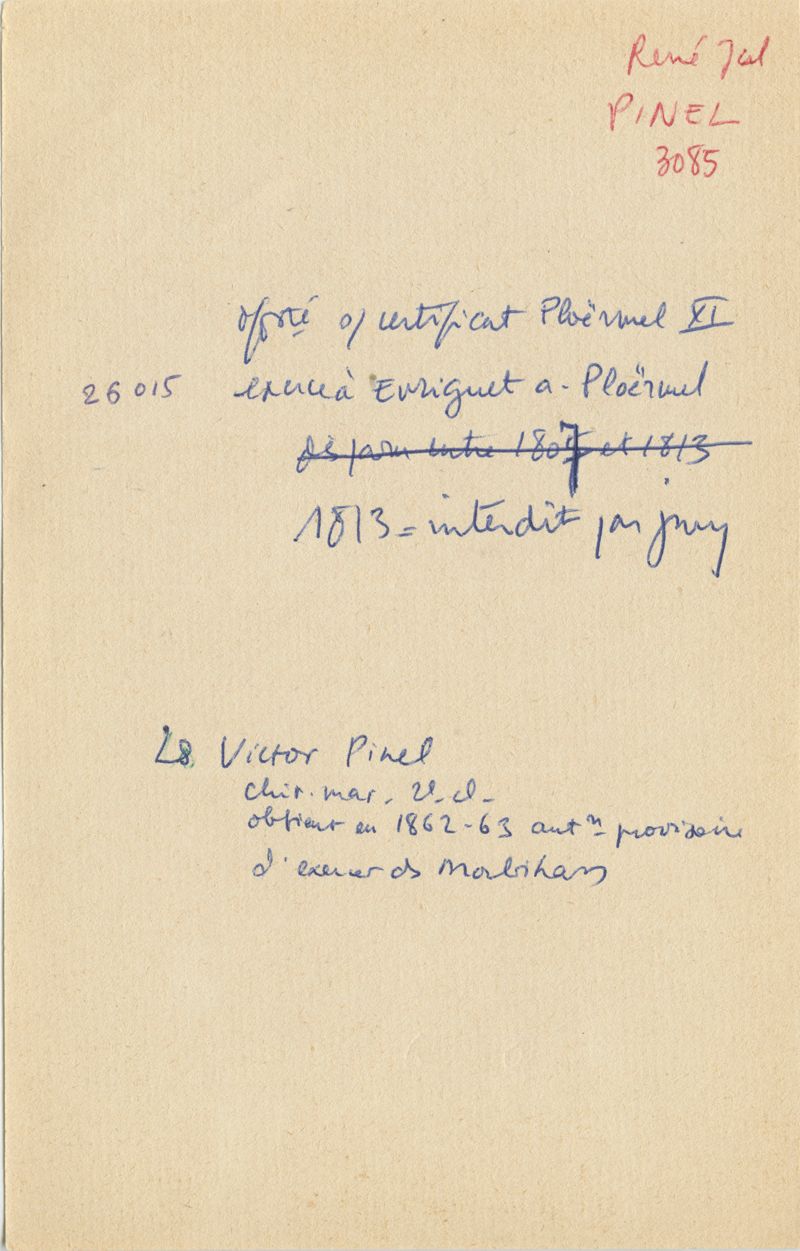 René Jal
PINEL
3085
certificat Ploërmel XI
26015 exerce à Evriguet a. Ploërmel
entre 1807 et 1813
1813 = interdit par jury
Ls Victor Pinel
chir. mar. 2e cl.
obtient en 1862-63 autn provisoire
d'exercer ds Morbihan